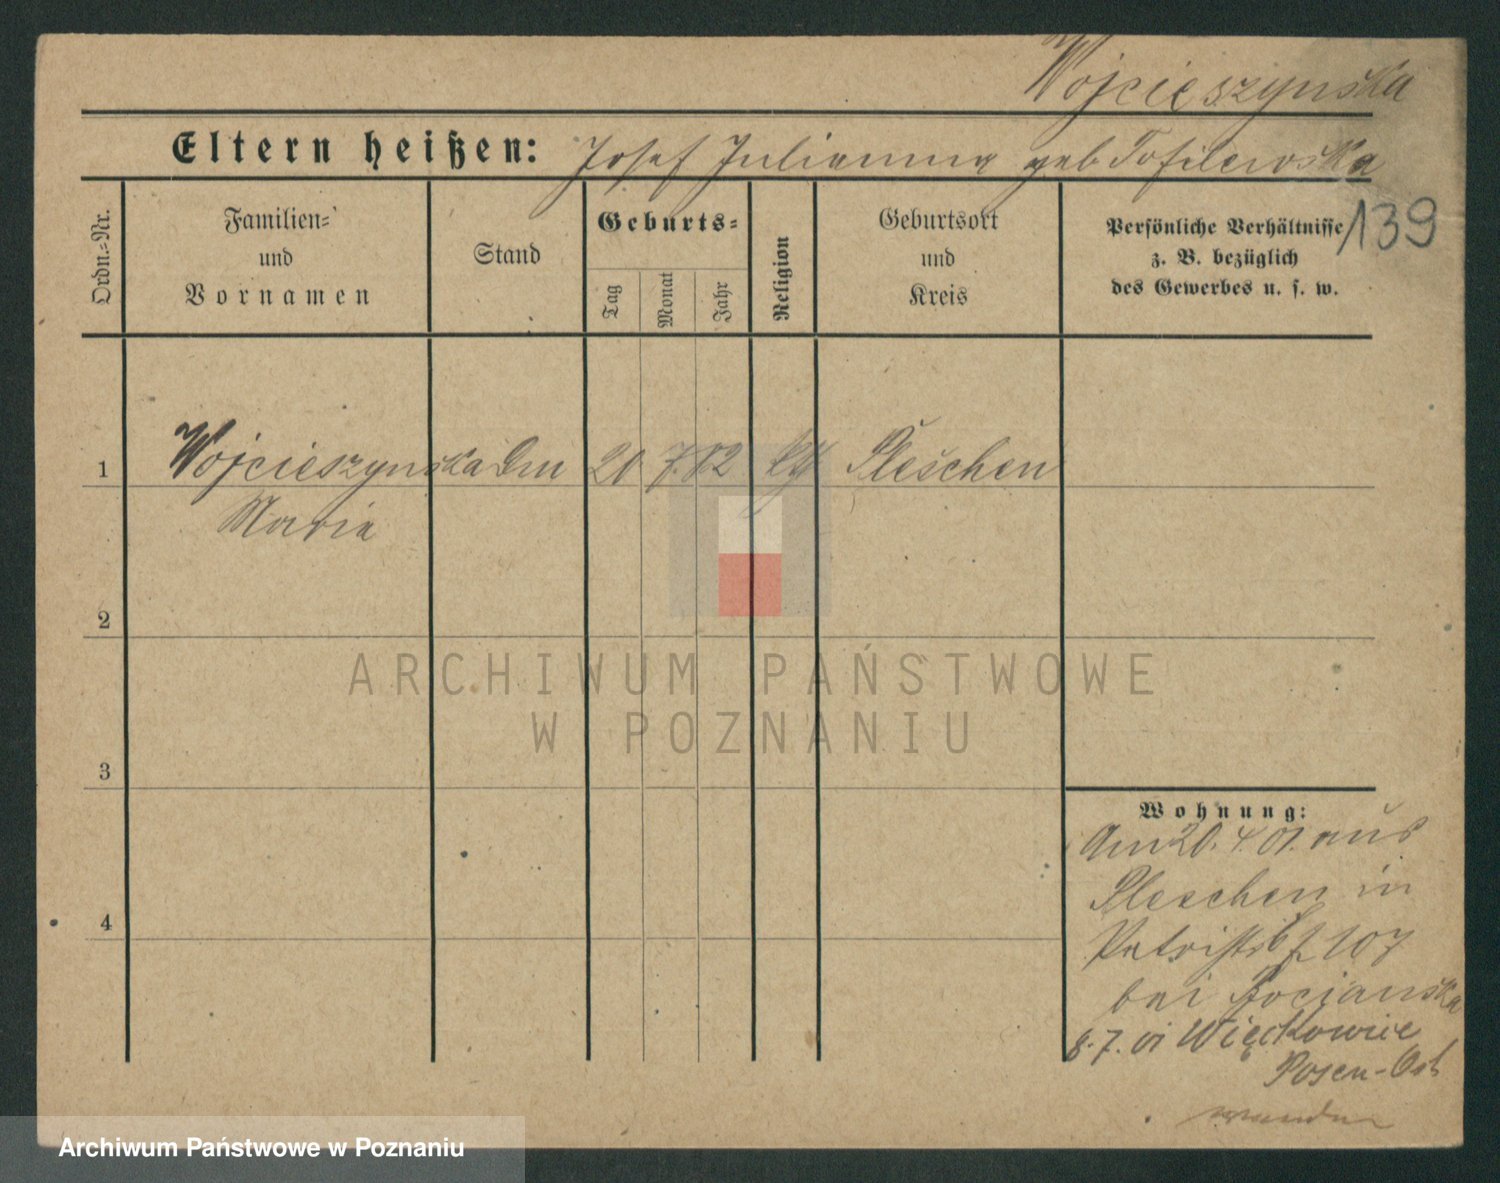 Wojcieszynska
Eltern heißen: Josef Julianna geb Tofilewska
139
Ordn.=Nr.
Familien=
und
Vornamen
Stand
Geburts=
Tag
Monat
Jahr
Religion
Geburtsort
und
Kreis
Persönliche Verhältnisse
z. B. bezüglich
des Gewerbes u. s. w.
1 Wojcieszynska 20 7. 82 Pleschen
Maria
2
3
4
Wohnung:
Am 20. 4. 01. aus
Pleschen in
107
bei
8. 7. 01 Więckowice
Posen-Ost
ARCHIWUM PAŃSTWOWE
W POZNANIU
Archiwum Państwowe w Poznaniu